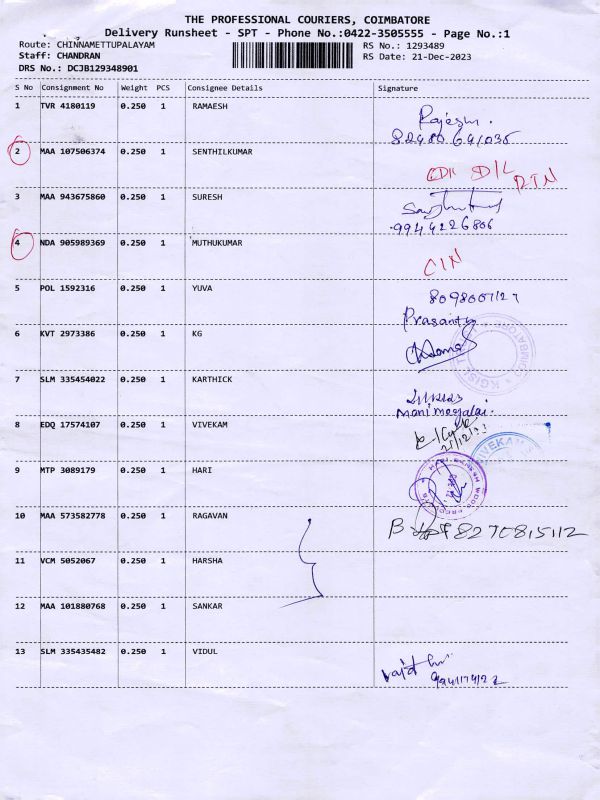 THE PROFESSIONAL COURIERS, COIMBATORE
Delivery Runsheet - SPT - Phone No.:0422-3505555 - Page No.:1
Route: CHINNAMETTUPALAYAM RS No.: 1293489
Staff: CHANDRAN RS Date: 21-Dec-2023
DRS No.: DCJB129348901
S No Consignment No Weight PCS Consignee Details Signature
1 TVR 4180119 0.250 1 RAMAESH
Rajesh.
2 MAA 107506374 0.250 1 SENTHILKUMAR
D/L
RTN
3 MAA 943675860 0.250 1 SURESH
9944226806
4 NDA 905989369 0.250 1 MUTHUKUMAR
CIN
5 POL 1592316 0.250 1 YUVA
Prasanth
6 KVT 2973386 0.250 1 KG
7 SLM 335454022 0.250 1 KARTHICK
Manimegalai.
8 EDQ 17574107 0.250 1 VIVEKAM
21/12/23
9 MTP 3089179 0.250 1 HARI
10 MAA 573582778 0.250 1 RAGAVAN
8270815112
11 VCM 5052067 0.250 1 HARSHA
12 MAA 101880768 0.250 1 SANKAR
13 SLM 335435482 0.250 1 VIDUL